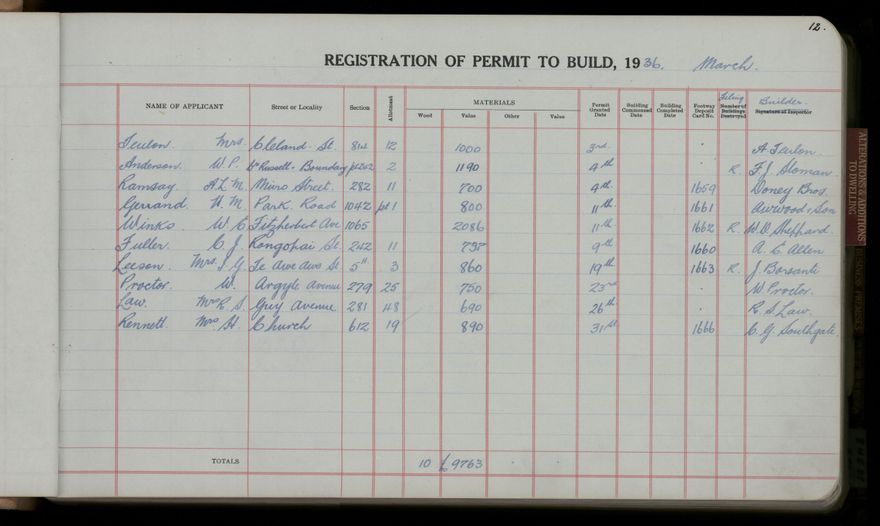 12.
REGISTRATION OF PERMIT TO BUILD, 1936. March.
NAME OF APPLICANT Street or Locality Section Allotment MATERIALS Wood Value Other Value Permit Granted Date Building Commenced Date Building Completed Date Footway Deposit Card No. Filing Number of Buildings Destroyed Builder. Signature of Inspector
Teulon. Mrs. Cleland St. 12 1000 3rd A. Teulon.
Anderson W P. Russell - Boundary 2 1190 4th R. F. J. Sloman.
Ramsay. A. L. M. Muro Street. 282 11 700 4th 1659 Doney Bros.
Gerrand. H M. Park Road 1042 pt 1 800 11th 1661 & Son
Winks. W. C. Fitzherbert Ave 1065 2086 11th 1662 R. W. D. Shephard.
Fuller. C J. Rongopai St. 242 11 9th 1660 A. C. Allen
Leeson. Mrs. Te Awe Awe St. 3 860 19th 1663 R. J. Borsanti
Proctor. W. Argyle Avenue 279 25 750 23rd W. Proctor.
Law. Mrs R. S. Guy Avenue. 281 48 690 26th R. S. Law.
Kennett. Mrs. H. Church 612 19 890 31st 1666 C. G. Southgate.
TOTALS 10 £9763
ALTERATIONS & ADDITIONS
TO DWELLING
BUSINESS PREMISES